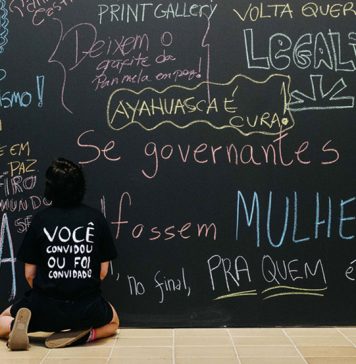 PRINT GALLERY
VOLTA QUER
Deixem o
grafite da
Pamela em paz!
LEGALI
ISMO!
AYAHUASCA É
CURA!
Se governantes
EM
PAZ
MUNDO
fossem MULHE
VOCÊ
CONVIDOU
OU FOI
CONVIDADO
no final,
PRA QUEM É